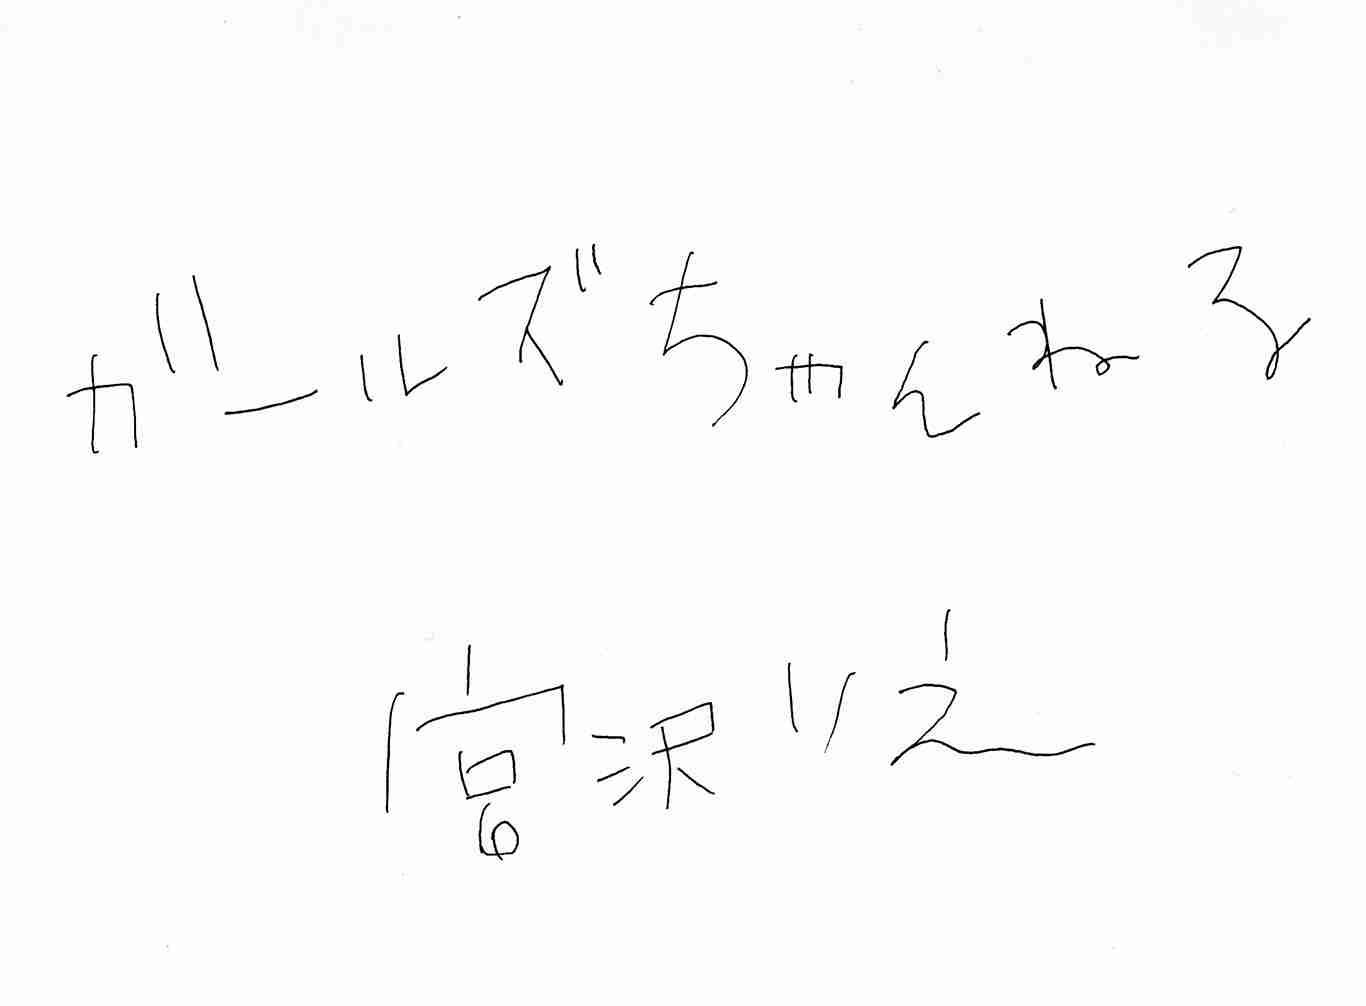 ガールズちゃんねる
宮沢りえ